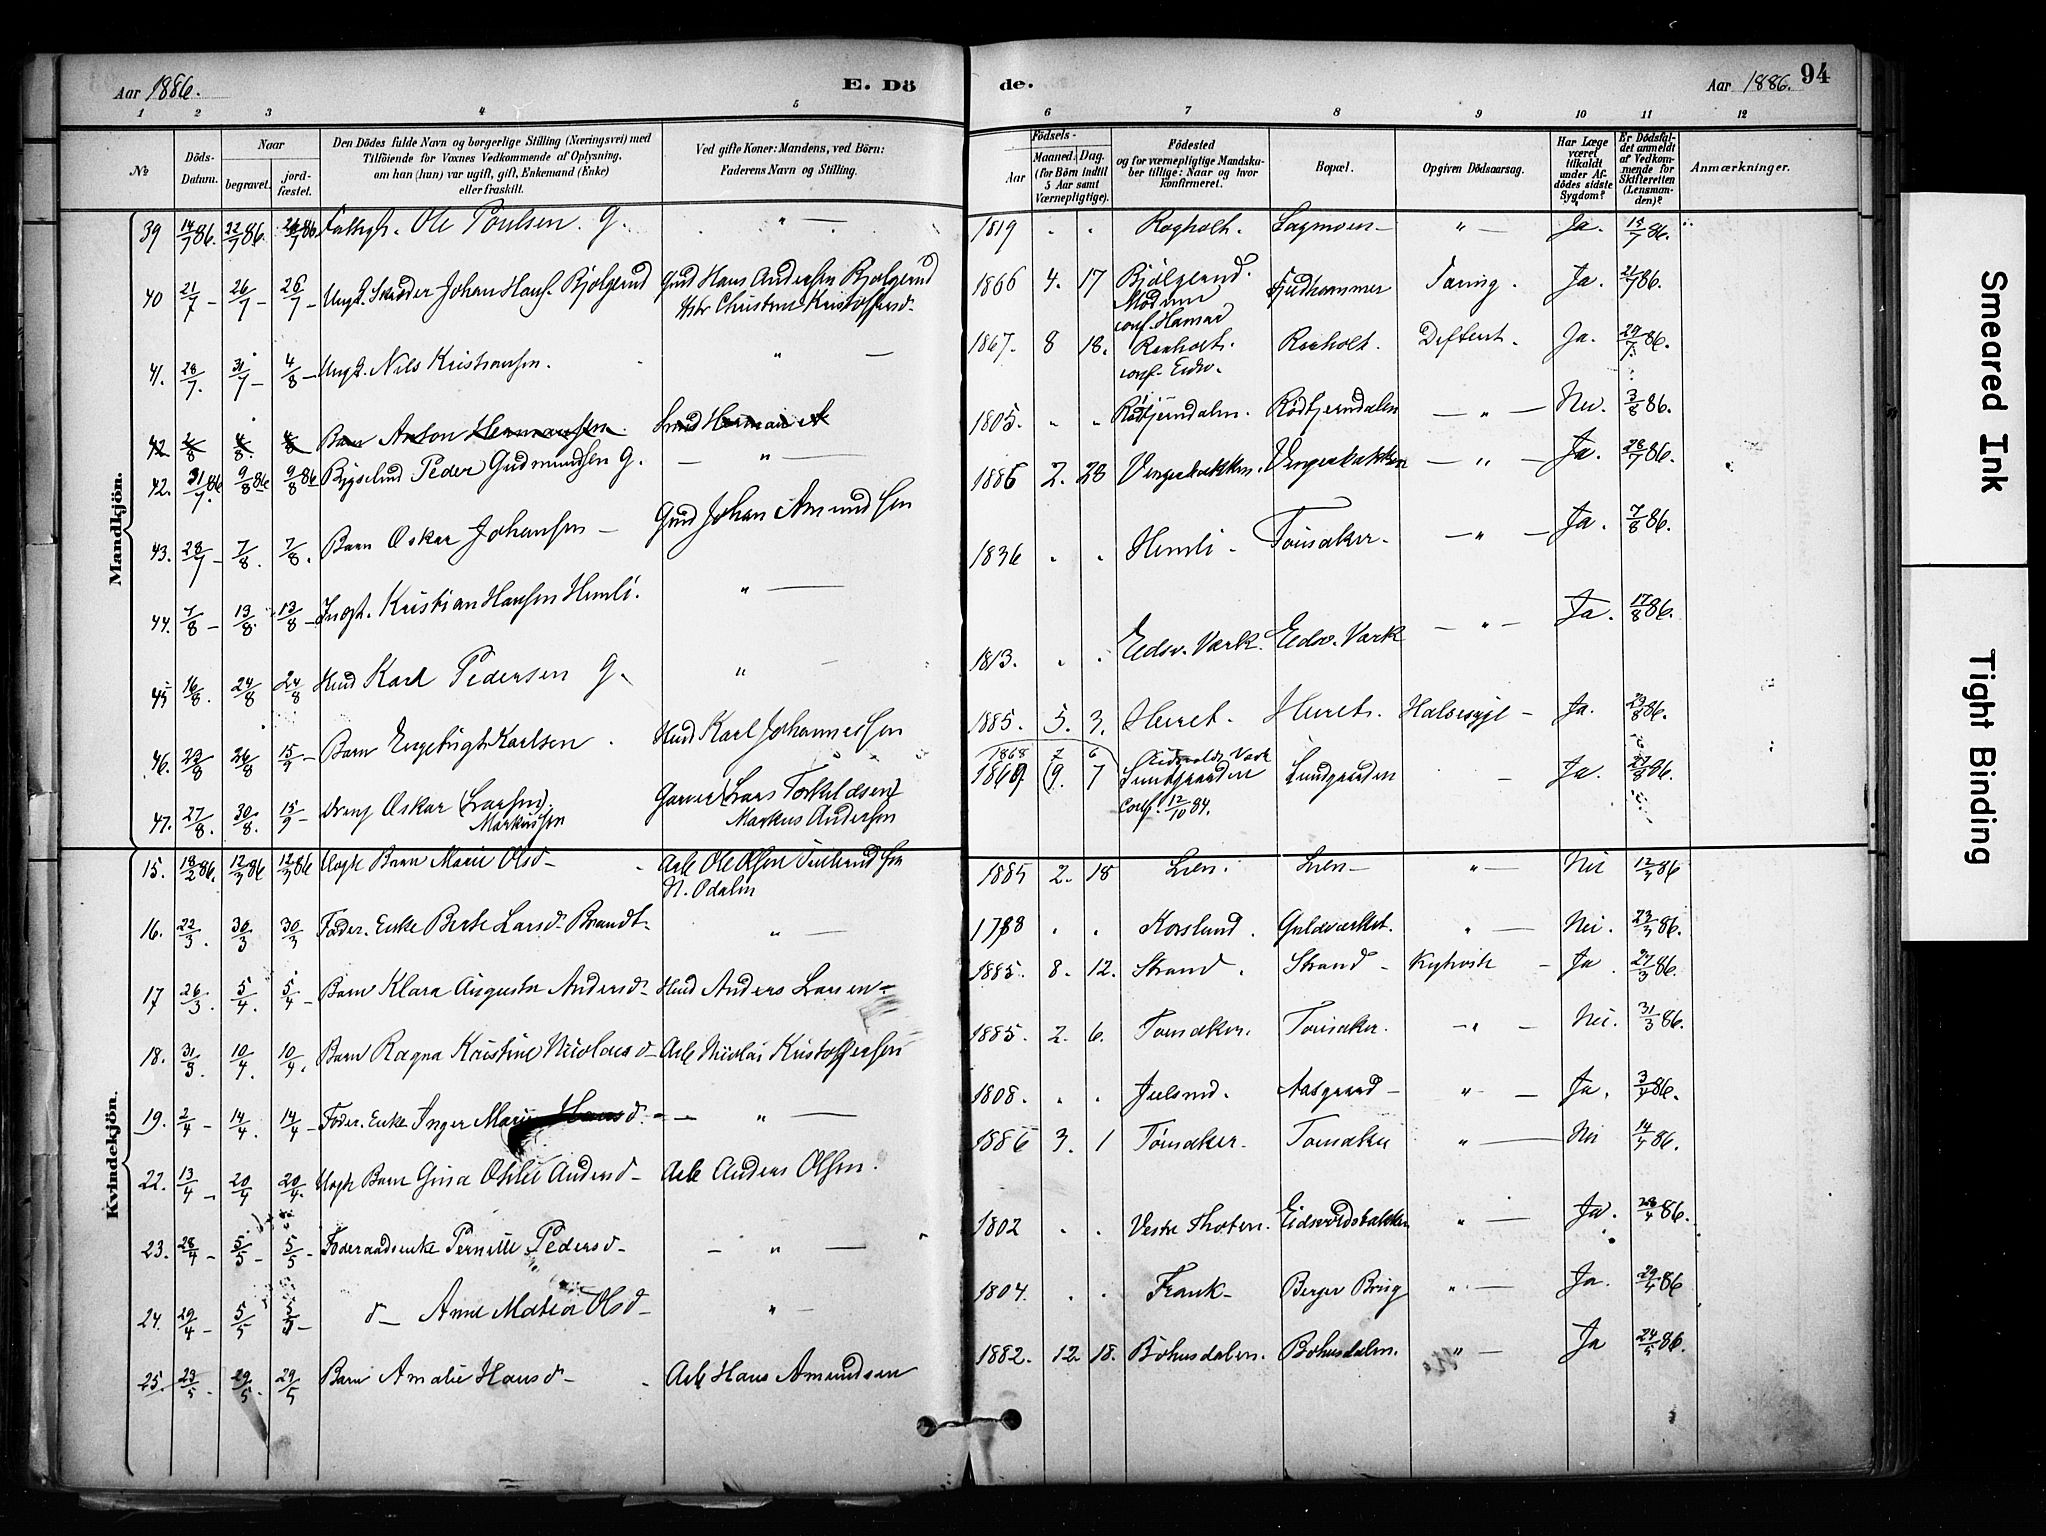 Aar 1886.
E. Dö
de.
Aar 1886.
94
1 2 3 4 5 6 7 8 9 10 11 12
№
Döds-Datum.
Naar
begravet.
jord-fæstet.
Den Dödes fulde Navn og borgerlige Stilling (Næringsvei) med
Tilföiende for Voxnes Vedkommende af Oplysning,
om han (hun) var ugift, gift, Enkemand (Enke)
eller fraskilt.
Ved gifte Koner: Mandens, ved Börn:
Faderens Navn og Stilling.
Födsels-
Aar
Maaned. Dag.
(for Börn indtil
5 Aar samt
Værnepligtige).
Födested
og for værnepligtige Mandska-
ber tillige: Naar og hvor
konfirmeret.
Bopæl.
Opgiven Dödsaarsag.
Har Læge
været
tilkaldt
under Af-
dödes sidste
Sygdom?
Er Dödsfal-
det anmeldt
af Vedkom-
mende for
Skifteretten
(Lensman-
den)?
Anmærkninger.
Mandkjön.
39 14/7 86. 22/7 86. Ole Poulsen. G. " — 1819 . . Rogholt. " — Ja. 15/7 86.
40 21/7 – 26/7 – 26/7 – Ungk. Skræder Johan Hans. Bjølgerud Gmd Hans Andersen Bjølgerud 1866 4. 17 Ja. 21/7 86.
Modrum
conf. Hamar
41. 28/7. 31/7 – 4/8 – Ungk. Nils Kristiansen. " — 1867. 8 18. Raaholt. Raaholt. Ja. 29/7. 86.
conf. Eidsv.
42 2/8 4/8. 4/8 Barn Anton Hermansen. Herman A
1805. . . — " — Nei. 3/8 86.
42. 31/7. 86 9/8 86 9/8 86 Peder Gudmundsen G. — " — 1886 2. 28 — " — Ja. 28/7 86.
43. 28/7 – 7/8. 7/8. Barn Oskar Johansen – Gmd Johan Amundsen
1836 . . Hemli – Tønsaker. — " — Ja. 7/8 86.
44. 7/8 – 13/8. 13/8 – Kristian Hansen Hemli. " —
1813. . . Eidsv. Værk. Eidsv. Værk — " — Ja. 17/8 86.
45 16/8. 24/8 24/8 Hmd Karl Pedersen G. " —
1885. 5. 3. – Ja. 23/8 86.
46. 22/8 26/8 15/9 – Barn Engebrigt Karlsen. Hmd Karl Johannessen
1868 7 6 Eidsvolds Værk
1869. (9. 7 Lundgaarden Lundgaarden – Ja. 27/8 86.
conf. 12/10 84.
47. 27/8. 30/8. 15/9 Dreng Oskar (Larsen) Garver (Lars Torkildsen)
Markussen Markus Andersen
Kvindekjön.
15. 18/2 86. 12/3 86 12/3 86 Uægte Barn Marie Olsd – Arb Ole Olsen
N. Odalen
1885 2. 18 Lien. Lien – " — Nei 12/3 86
16. 22/3. 30/3 30/3 Føder. Enke Berte Larsd. Brandt. " — 1788 . . Korslund. Guldværket. " — Nei. 23/3 86.
17 26/3. 5/4. 5/4 – Barn Klara Augusta Andersd – Hmd Anders Larsen – 1885. 8. 12. Strand. Strand – – Ja. 27/3 86.
18. 31/3. 10/4. 10/4. Barn Ragna Kristine Nicolaisd – Arb Nicolai Kristoffersen 1885. 2. 6. Tønsaker. Tønsaker. – " – Nei. 31/3 86.
19. 2/4 – 14/4. 14/4 – Føder. Enke Inger Marie Hansd. – — " — 1808. . . Julsrud. Aasgaard – " — Ja. 3/4 86.
22. 13/4 – 20/4 20/4. Uægte Barn Gina Othlie Andersd – Arb Anders Olsen. 1886 3. 1 Tønsaker. Tønsaker " — Nei 14/4 86.
23. 28/4 – 5/5 – 5/5 – Føderaadsenke Pernille Pedersd – – " — 1802 . . Vestre Thoten. Eidsvoldsbakken " — Ja. 28/4 86.
24. 29/4 – 5/5 5/5 – d – Anne Matea Olsd – " — 1804. . . Frank – Berger Brug " — Ja. 29/4 86
25. 23/5. 29/5. 29/5 Barn Amalie Hansd – Arb Hans Amundsen 1882. 12. 18. Bøhusdalen. Bøhusdalen. " — Ja 24/5 86.
Smeared Ink
Tight Binding